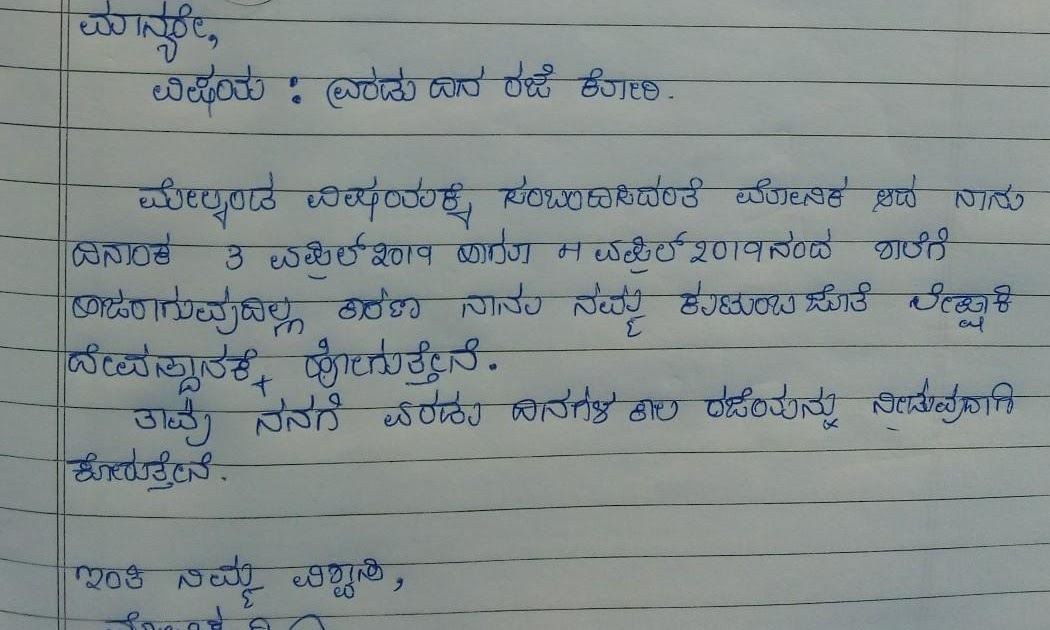 ಮಾನ್ಯರೇ,
ವಿಷಯ : ಎರಡು ದಿನ ರಜೆ ಕೋರಿ.
ಮೇಲ್ಕಂಡ ವಿಷಯಕ್ಕೆ ಸಂಬಂದಿಸಿದಂತೆ ಮೋನಿಕ ಆದ ನಾನು
ದಿನಾಂಕ 3 ಎಪ್ರಿಲ್ 2019 ಹಾಗೂ 4 ಎಪ್ರಿಲ್ 2019ನಂದ ಶಾಲೆಗೆ
ಹಾಜರಾಗುವುದಿಲ್ಲ ಕಾರಣ ನಾನು ನಮ್ಮ ಕುಟುಂಬ ಜೊತೆ
ದೇವಸ್ಥಾನಕ್ಕೆ ಹೋಗುತ್ತೇನೆ.
ತಾವು ನನಗೆ ಎರಡು ದಿನಗಳ ಕಾಲ ರಜೆಯನ್ನು ನೀಡುವುದಾಗಿ
ಕೋರುತ್ತೇನೆ.
ಇಂತಿ ನಿಮ್ಮ ವಿಶ್ವಾಸಿ,